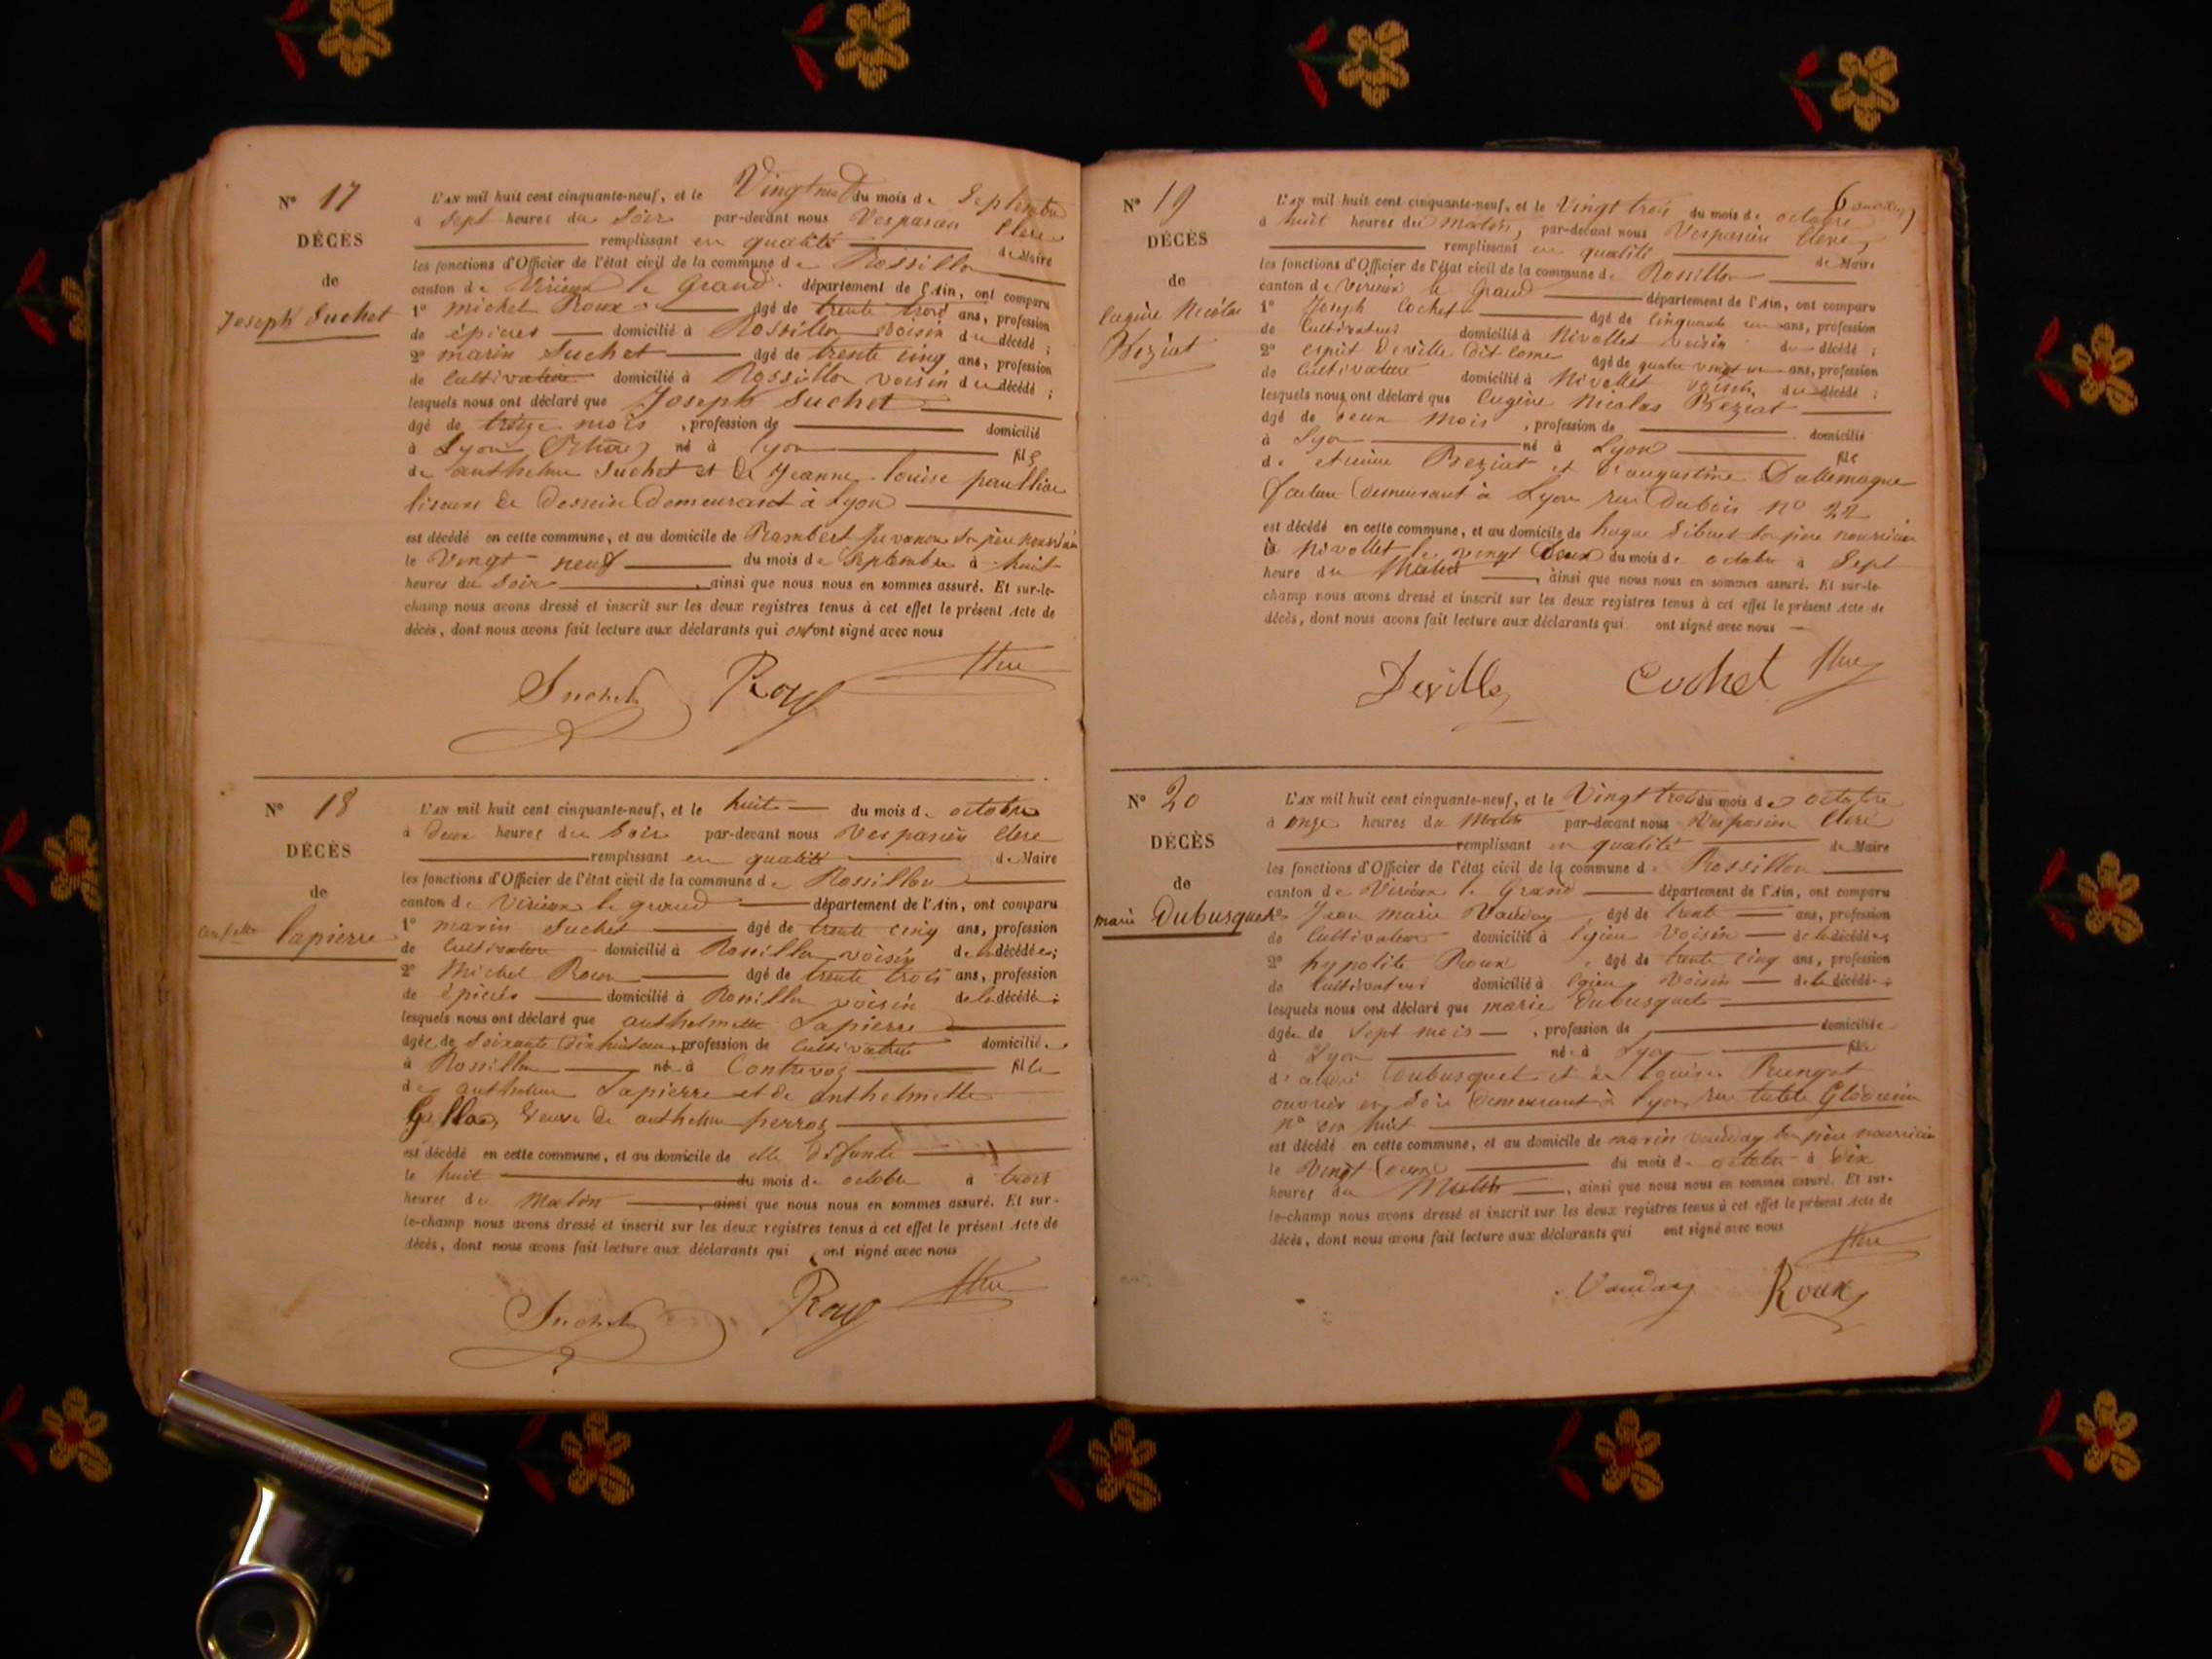 N° 17
DÉCÈS
de
Joseph Suchet
L'AN mil huit cent cinquante-neuf, et le Vingt neuf du mois de Septembre
à Sept heures du Soir par-devant nous Vespasien Clerc
remplissant en qualité de Maire
les fonctions d'Officier de l'état civil de la commune de Rossillon
canton de Virieux le Grand département de l'Ain, ont comparu
1° michel Roux âgé de trente trois ans, profession
de épicier domicilié à Rossillon voisin du décédé ;
2° marin Suchet âgé de trente cinq ans, profession
de cultivateur domicilié à Rossillon voisin du décédé ;
lesquels nous ont déclaré que Joseph Suchet
âgé de treize mois , profession de domicilié
à Lyon (Rhône) né à Lyon fils
de anthelme Suchet et de Jeanne Louise
liseur de Dessein Demeurant à Lyon
est décédé en cette commune, et au domicile de Rambert son père nourricier
le Vingt neuf du mois de Septembre à huit
heures du Soir , ainsi que nous nous en sommes assuré. Et sur-le-
champ nous avons dressé et inscrit sur les deux registres tenus à cet effet le présent Acte de
décès, dont nous avons fait lecture aux déclarants qui ont signé avec nous
Suchet Roux
N° 18
DÉCÈS
de
Lapierre
L'AN mil huit cent cinquante-neuf, et le huit du mois de octobre
à deux heures du Soir par-devant nous Vespasien Clerc
remplissant en qualité de Maire
les fonctions d'Officier de l'état civil de la commune de Rossillon
canton de Virieux le grand département de l'Ain, ont comparu
1° marin Suchet âgé de trente cinq ans, profession
de Cultivateur domicilié à Rossillon voisin de la décédée ;
2° Michel Roux âgé de trente trois ans, profession
de épicier domicilié à Rossillon voisin de la décédée ;
lesquels nous ont déclaré que anthelmette Lapierre
âgée de soixante dix huit ans, profession de Cultivatrice domiciliée
à Rossillon née à Contrevoz fille
de anthelme Lapierre et de anthelmette
veuve de anthelme perroz
est décédé en cette commune, et au domicile de elle défunte
le huit du mois de octobre à trois
heures du Matin , ainsi que nous nous en sommes assuré. Et sur-
le-champ nous avons dressé et inscrit sur les deux registres tenus à cet effet le présent Acte de
décès, dont nous avons fait lecture aux déclarants qui ont signé avec nous
Suchet Roux
N° 19
DÉCÈS
de
Eugène Nicolas
Beziat
6
L'AN mil huit cent cinquante-neuf, et le Vingt trois du mois de octobre
à huit heures du Matin, par-devant nous Vespasien Clerc,
remplissant en qualité de Maire
les fonctions d'Officier de l'état civil de la commune de Rossillon
canton de Virieux le Grand département de l'Ain, ont comparu
1° Joseph Cochet âgé de cinquante un ans, profession
de Cultivateur domicilié à Nivollet voisin du décédé ;
2° esprit Deville dit come âgé de quatre vingt un ans, profession
de Cultivateur domicilié à Nivollet voisin du décédé ;
lesquels nous ont déclaré que Eugène Nicolas Beziat
âgé de deux mois , profession de domicilié
à Lyon né à Lyon fils
de etienne Beziat et d'augustine Dallemagne
Demeurant à Lyon rue Dubois N° 22
est décédé en cette commune, et au domicile de hugue Sibuet son père nourricier
à Nivollet le vingt deux du mois de octobre à Sept
heure du Matin , ainsi que nous nous en sommes assuré. Et sur-le-
champ nous avons dressé et inscrit sur les deux registres tenus à cet effet le présent Acte de
décès, dont nous avons fait lecture aux déclarants qui ont signé avec nous
Deville Cochet
N° 20
DÉCÈS
de
marie Dubusquet
L'AN mil huit cent cinquante-neuf, et le Vingt trois du mois de octobre
à onze heures du Matin par-devant nous Vespasien Clerc
remplissant en qualité de Maire
les fonctions d'Officier de l'état civil de la commune de Rossillon
canton de Virieux le Grand département de l'Ain, ont comparu
1° Jean marie Vauday , âgé de trente ans, profession
de Cultivateur domicilié à Egieu Voisin de la décédée ;
2° hypolite Roux , âgé de trente cinq ans, profession
de Cultivateur domicilié à Egieu Voisin de la décédée ;
lesquels nous ont déclaré que marie Dubusquet
âgée de Sept mois , profession de domiciliée
à Lyon née à Lyon fille
d' Dubusquet et de Louise
ouvrier en Soie Demeurant à Lyon, rue
n° dix huit
est décédé en cette commune, et au domicile de marin Vauday son père nourricier
le Vingt deux du mois de octobre à dix
heures du Matin , ainsi que nous nous en sommes assuré. Et sur-
le-champ nous avons dressé et inscrit sur les deux registres tenus à cet effet le présent Acte de
décès, dont nous avons fait lecture aux déclarants qui ont signé avec nous
Vauday Roux